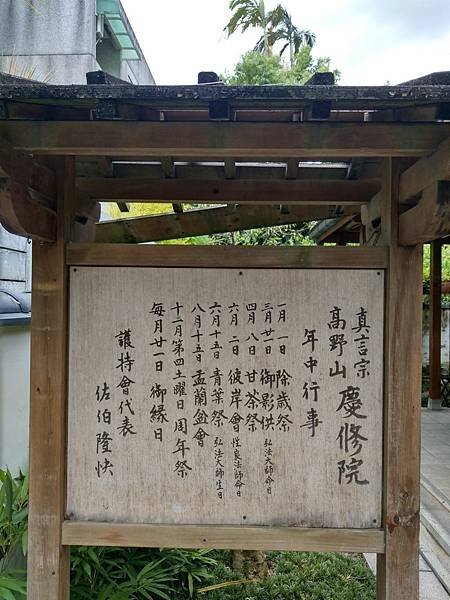 真言宗
高野山 慶修院
年中行事
一月一日 除歳祭
三月廿一日 御影供 弘法大師命日
四月八日 甘茶祭
六月二日 彼岸會 性良法師命日
六月十五日 青葉祭 弘法大師生日
八月十五日 盂蘭盆會
十一月第四土曜日 周年祭
每月廿一日 御縁日
護持會代表
佐伯隆快